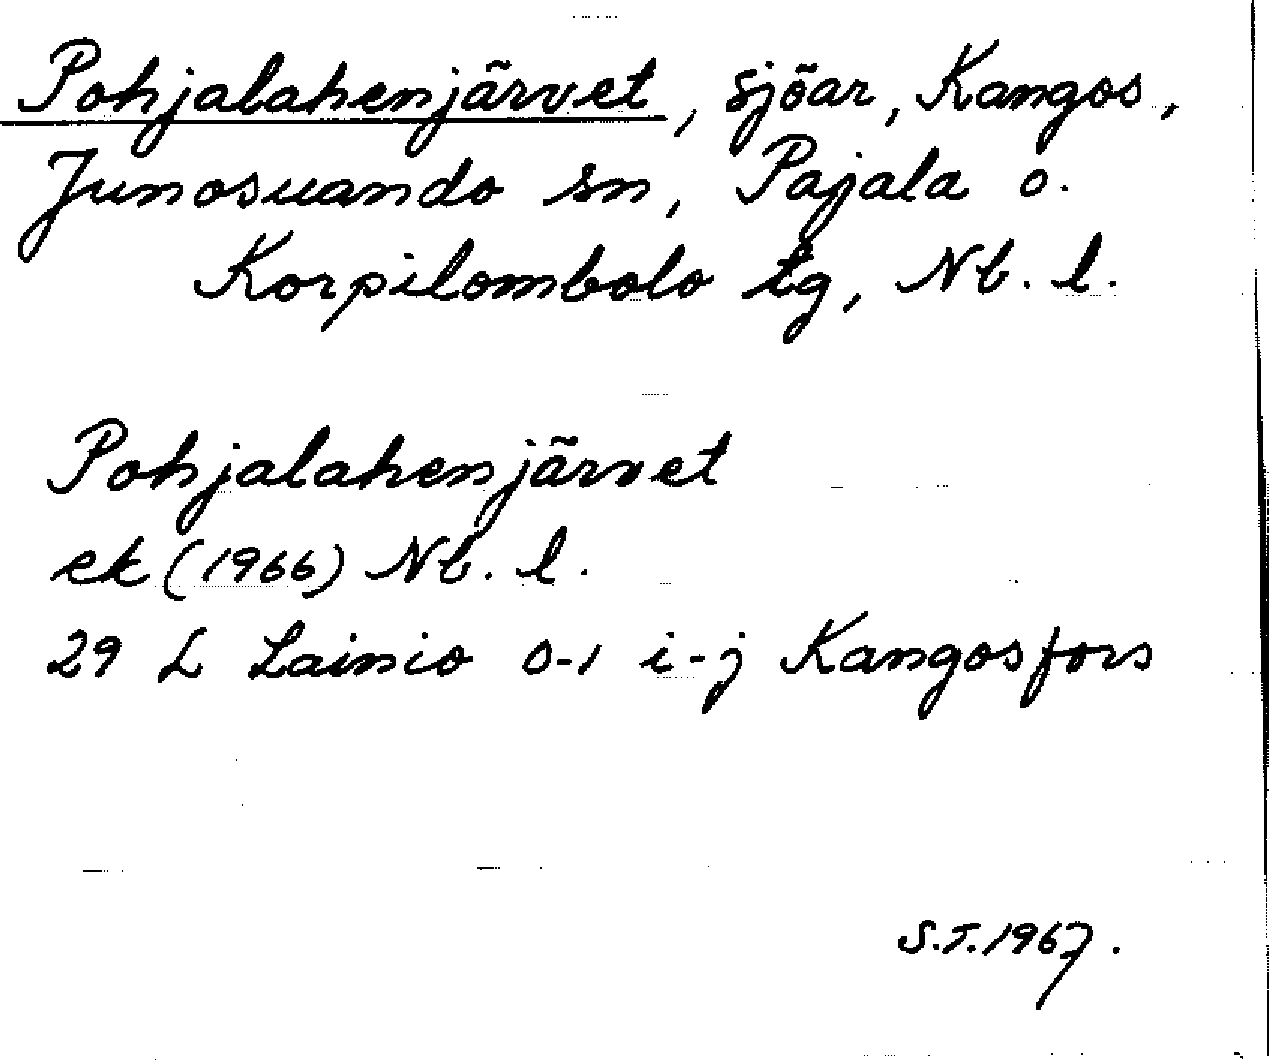 Pohjalahenjärvet, sjöar, Kangos,
Junosuando sn, Pajala o.
Korpilombolo tg, Nb. l.
Pohjalahenjärvet
ek (1966) Nb. l.
29 L Lainio 0-1 i-j Kangosfors
S.T. 1967.